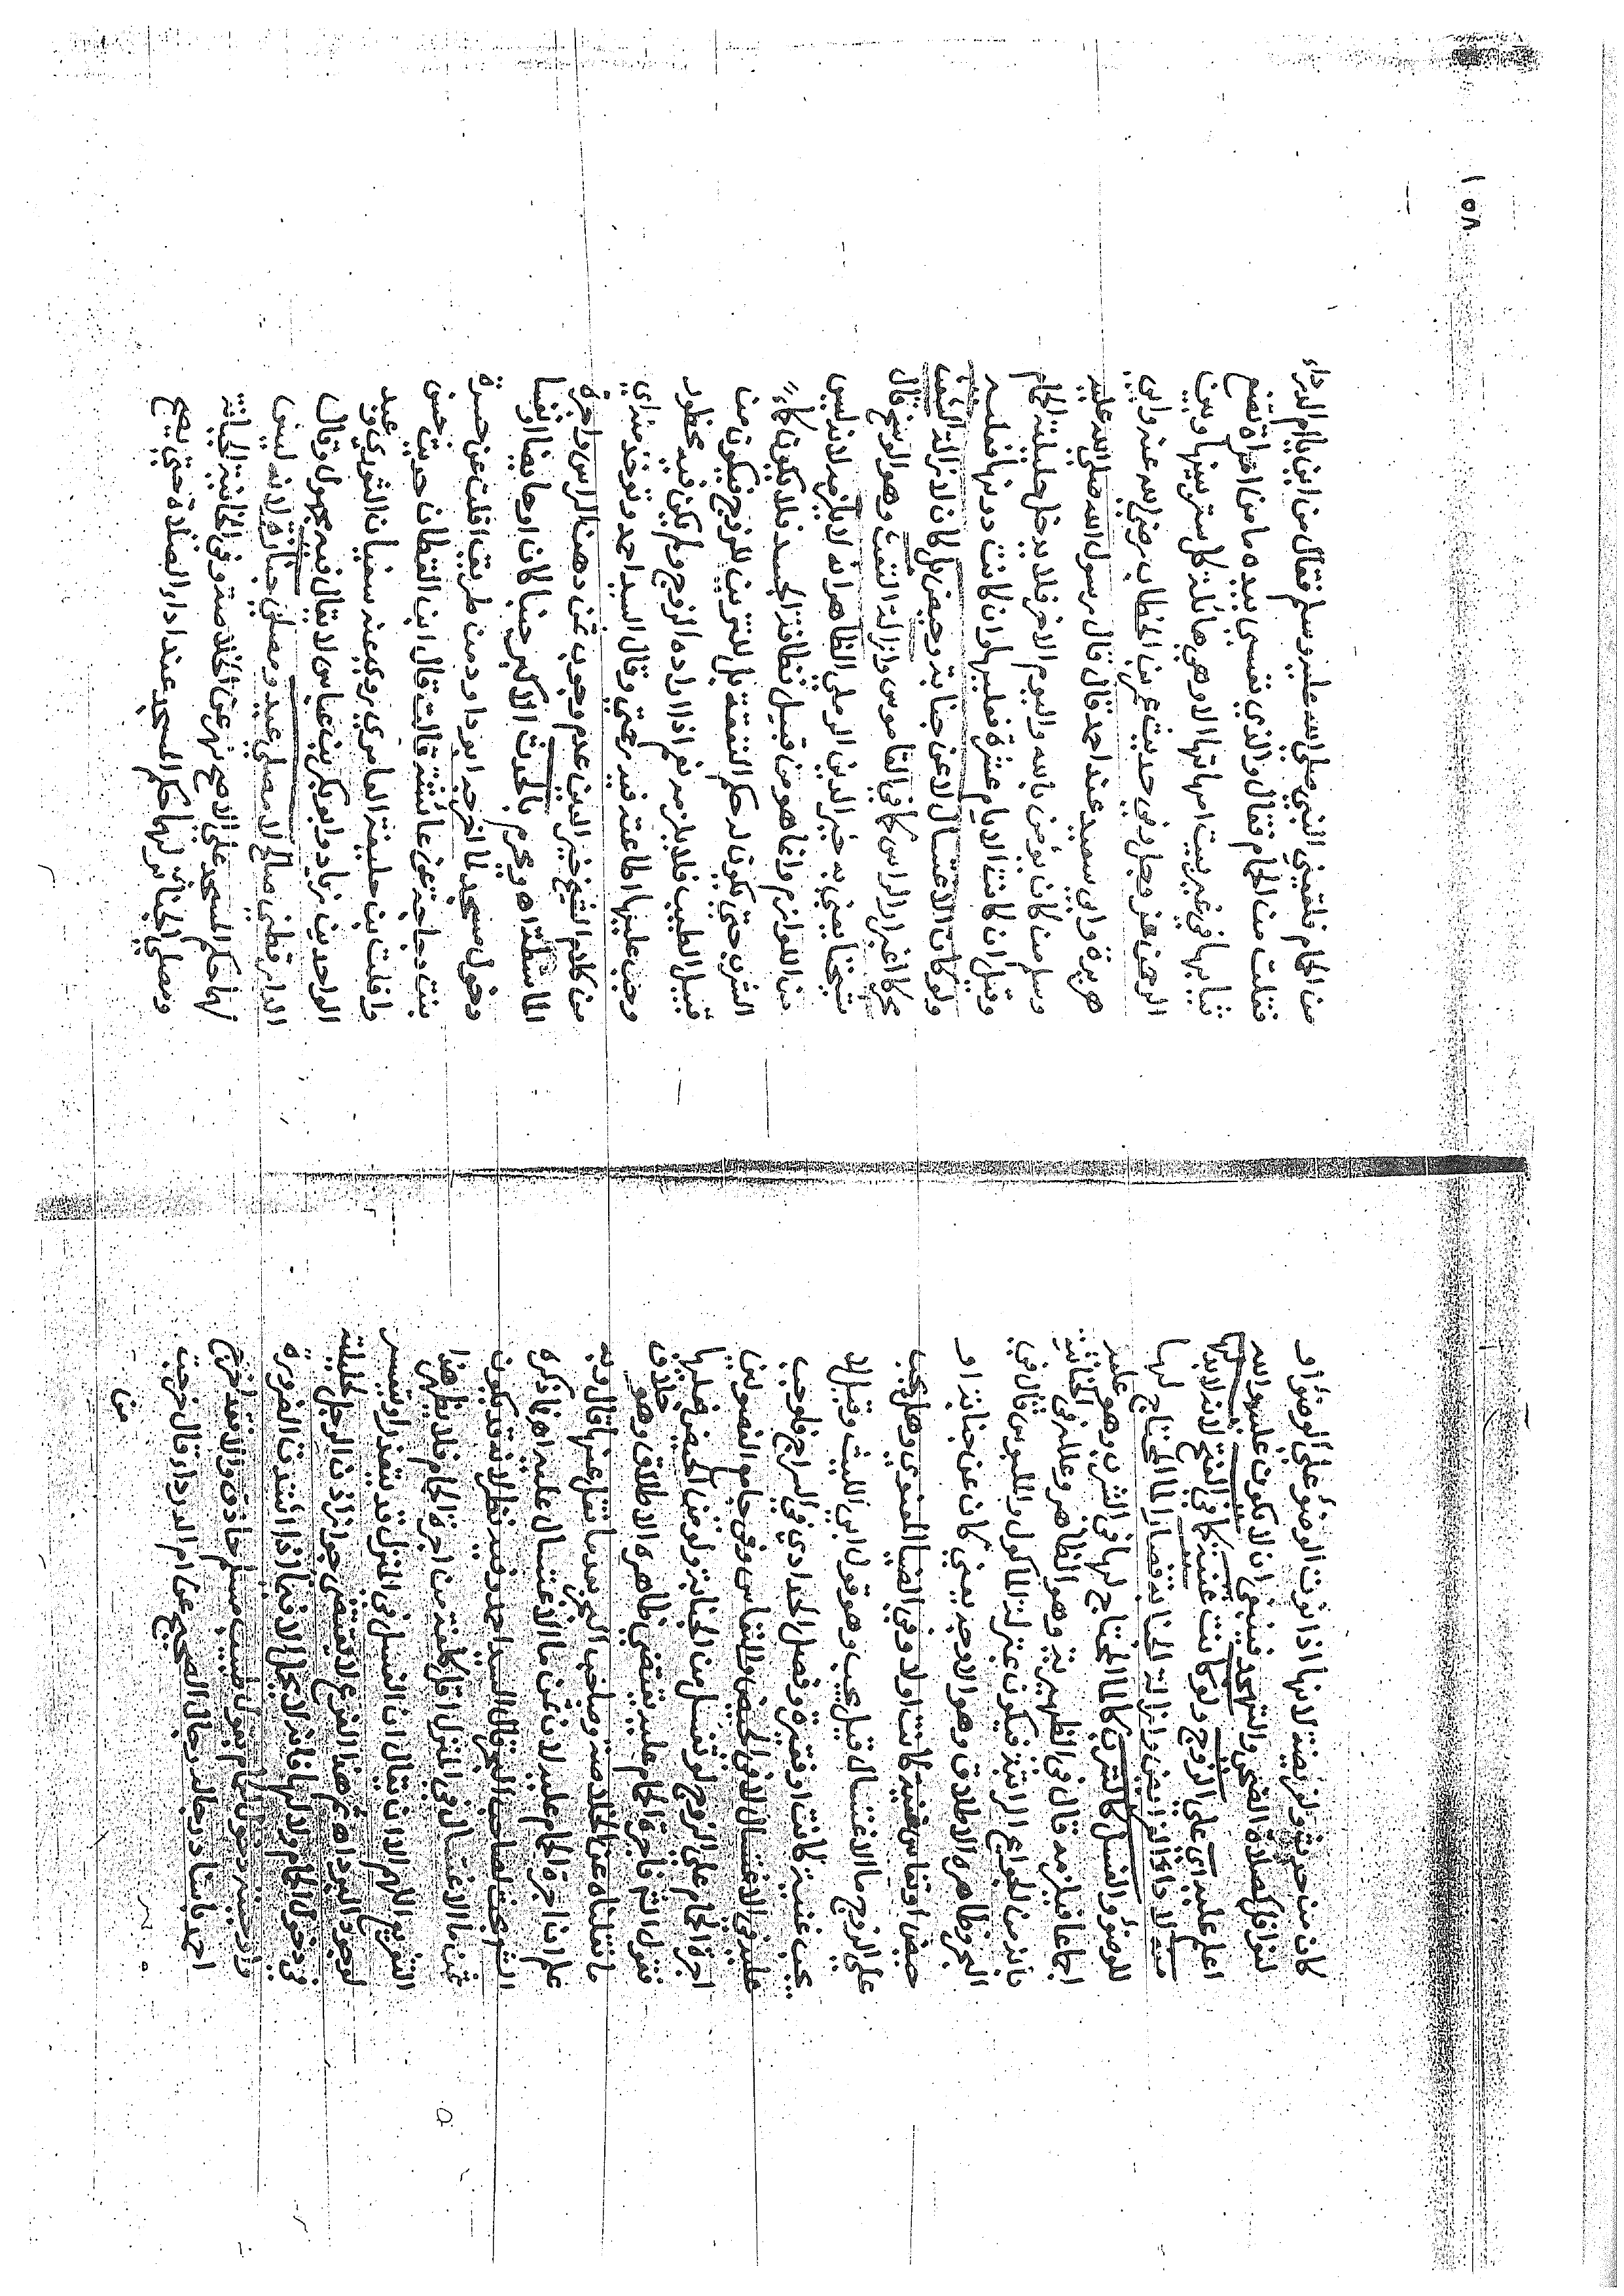 ١٥٨
كان من حدث لانها اذا نوت الوضوء على الوضوء او
لنوافل كصلاة الضحى والتهجد فينبغي ان لا يكون عليه والله
اعلم عليه اي على الزوج ولو كانت غنية كما في الفتح لانه لا بد لها
منه لاداء الفرايض وازالة الجنابة فصار الماء المحتاج لها
للوضوء والغسل كالشرب كالماء المحتاج لها في الشرب وهو عليه
اجماعا فيلزمه قال في الظهيرية وهو الظاهر وعلله في الخانية
بانه من الحوايج الراتبة فيكون بمنزلة المأكول والملبوس قال في
البحر وظاهره الاطلاق وهو الاوجه يعني كان عن جنابة او
حيض او نفاس غنية كانت اولا وفي الضيا المعنوي وهل يجب
على الزوج ما الاغتسال قيل يجب وهو قول ابي الليث وقيل لا
يجب غنية كانت او فقيرة وفصل الحدادي في السراج فاوجب
عليه في الاغتسال لا في الحيض والنفاس وفي جامع الفصولين
اجرة الحمام على الزوج لو تغتسل من الجنابة ولو من الحيض فعليها
فقول الشرح فاجرة الحمام عليه يقتضي ظاهره الاطلاق وهو خلاف
ما نقلناه عن الخلاصة وصاحب البحر بعد ما نقل عنها قال وبه
علم ان اجرة الحمام عليه لان ثمن ما الاغتسال عليه اه فما ذكره
الشرح بحث لصاحب البحر قال السيد احمد وفيه نظر لانه قد يكون
ثمن ما الاغتسال في المنزل اقل كلفة من اجرة الحمام فلا يظهر هذا
التفريع اللهم الا ان يقال ان الغسل في المنزل قد يتعذر او يتعسر
لوجود البرد اه ثم هذا الفرع لا يقتضي جواز اذن الرجل لحليلته
في دخول الحمام ولا دلها فانه لا يحل الا فيما اذا اشتدت الضرورة
واذن حينئذ دخول الحمام بقول طبيب مسلم حاذق والا فقد اخرج
احمد باسناد رجاله رجال الصحيح عن ام الدرداء قال خرجت
من
من الحمام فلقيني النبي صلى الله عليه وسلم فقال من اين يا ام الدرداء
فقلت من الحمام فقال والذي نفسي بيده ما من امراة تضع
ثيابها في غير بيت امهاتها الا وهي هاتكة كل ستر بينها وبين
الرحمن عز وجل وفي حديث عمر بن الخطاب رضي الله عنه وابي
هريرة وابي سعيد عند احمد قال قال رسول الله صلى الله عليه
وسلم من كان يؤمن بالله واليوم الاخر فلا يدخل حليلته الحمام
وقيل ان كانت الايام عشرة فعليها وان كانت دونها فعليه
ولو كان الاغتسال لا عن جنابة وحيض بل كان لازالة الشعث
محركا اغبرار الراس كما في القاموس وازالة التفث وهو الوسخ قال
شيخنا يعني به خير الدين الرملي الظاهر انه لا يلزمه لانه ليس
من اللوازم وانما هو من قبيل نظافة الجسد فلا يكون كماء
الشرب حتى يكون له حكم النفقة بل للتزين للزوج فيكون من
قبيل الطيب فلا يلزمه نعم اذا اراده الزوج ولم يكن فيه محظور
وجب عليها اطاعته فيه رحمتي وقال السيد احمد ويؤخذ من راي
من كلام الشيخ خير الدين عدم وجوب ثمن دهن الراس واجرة
الماشطة اه ويحرم بالحدث الاكبر جنبا كان او حايضا او نفسا
دخول مسجد لما اخرجه ابو داود من طريق افلت عن جسرة
بنت دجاجة عن عائشة قالت قال ابن القطان حديث حسن
وافلت بن خليفة العامري يروي عنه سفيان الثوري وعبد
الواحد بن زياد وابو بكر بن عياش لا يقال فيه مجهول وقال
الدارقطني صالح لا مصلى عيد ومصلى جنازة لانه ليس
لها حكم المسجد على الاصح نهر عن الخلاصة وفي الخانية الجبانة
ومصلى الجنائز لهما حكم المسجد عند اداء الصلاة حتى يصح